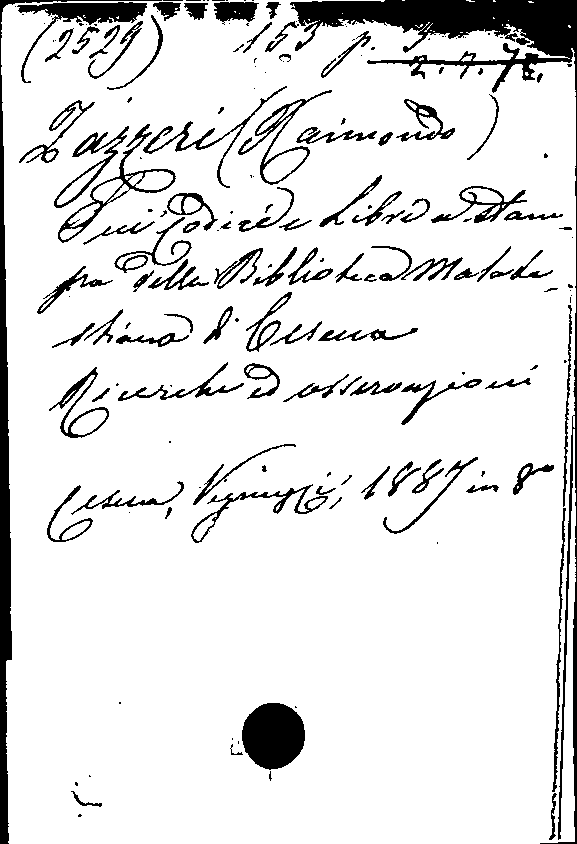 (2529) 153 p. 3
2. 7. 7E.
Zazzeri (Raimondo)
Sui Codici e Libri a stam-
pa della Biblioteca Malate-
stiana di Cesena
Ricerche ed osservazioni
Cesena, Vignuzzi, 1887 in 8º